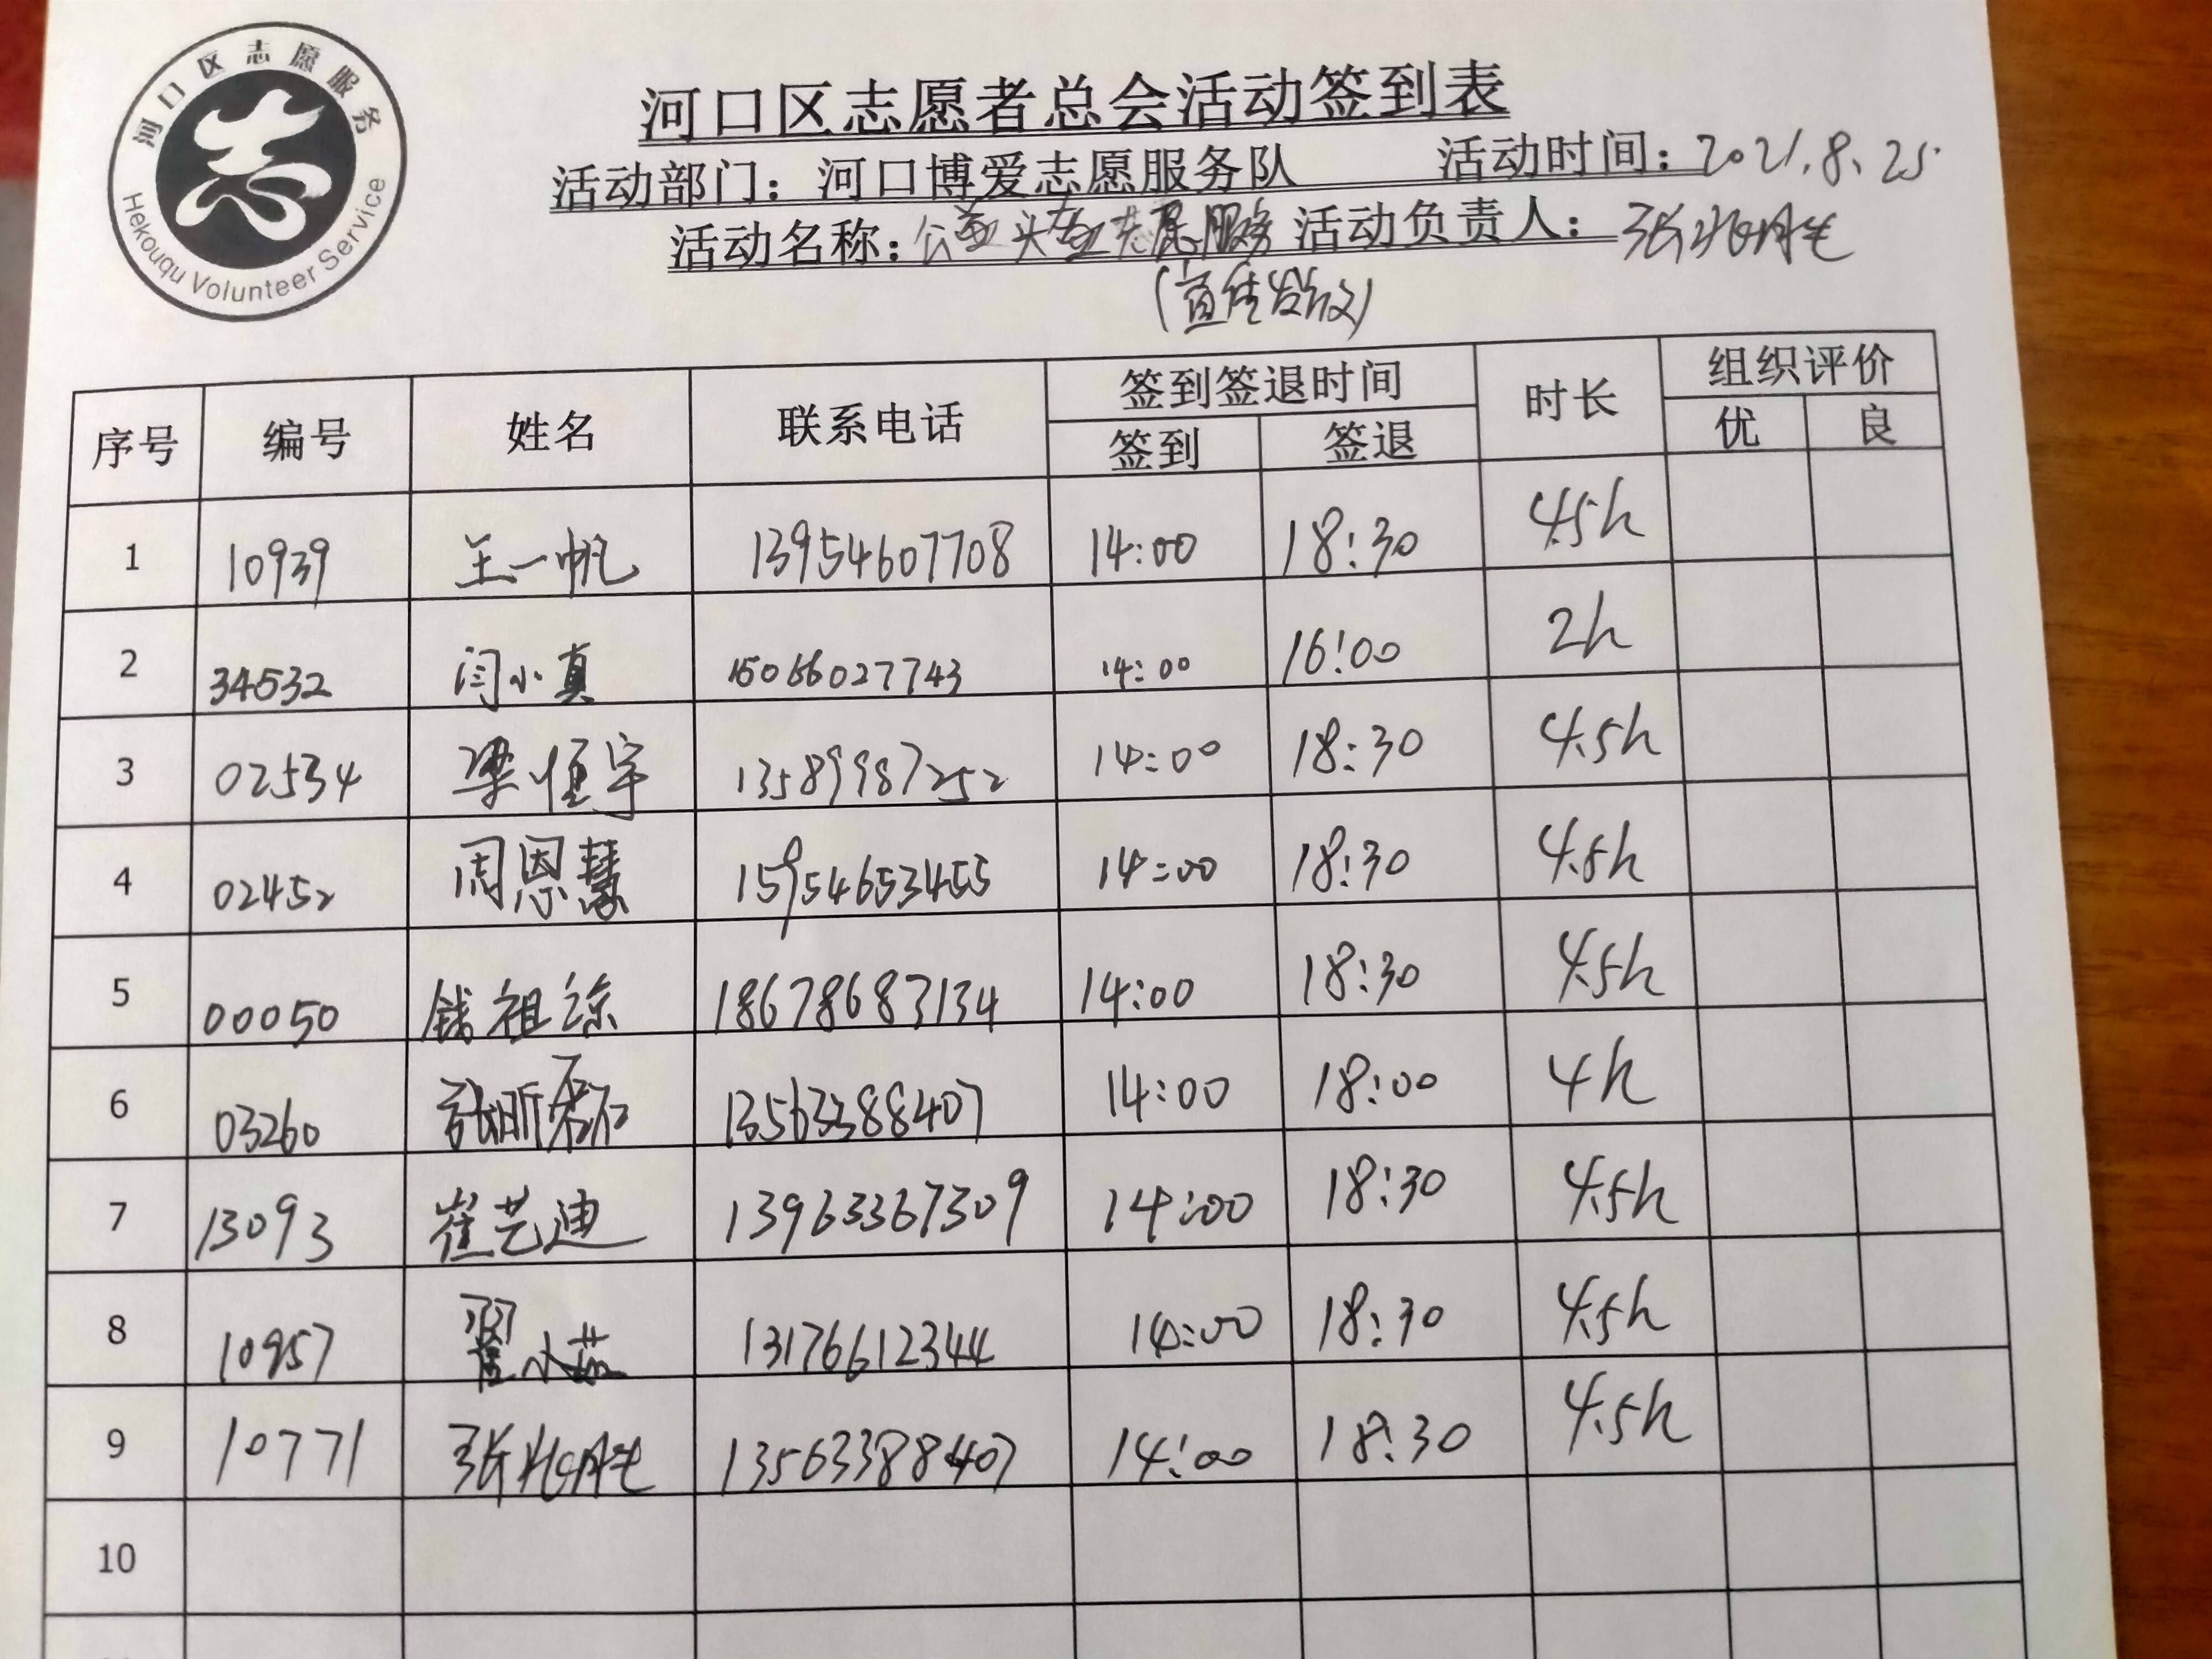 河口区志愿服务
Hekouqu Volunteer Service
河口区志愿者总会活动签到表
活动部门：河口博爱志愿服务队 活动时间：2021.8.25
活动名称：公益 志愿服务 活动负责人：张
序号 编号 姓名 联系电话 签到签退时间 时长 组织评价
签到 签退 优 良
1 10939 王一帆 13954607708 14:00 18:30 4.5h
2 34532 闫小真 15066027743 14:00 16:00 2h
3 02534 梁恒宇 13589987252 14:00 18:30 4.5h
4 02452 周恩慧 15954653455 14:00 18:30 4.5h
5 00050 钱祖 18678683134 14:00 18:30 4.5h
6 03260 张昕磊 13563388407 14:00 18:00 4h
7 13093 崔艺迪 13963367309 14:00 18:30 4.5h
8 10957 翟小茹 13176612344 14:00 18:30 4.5h
9 10771 张 13563388407 14:00 18:30 4.5h
10